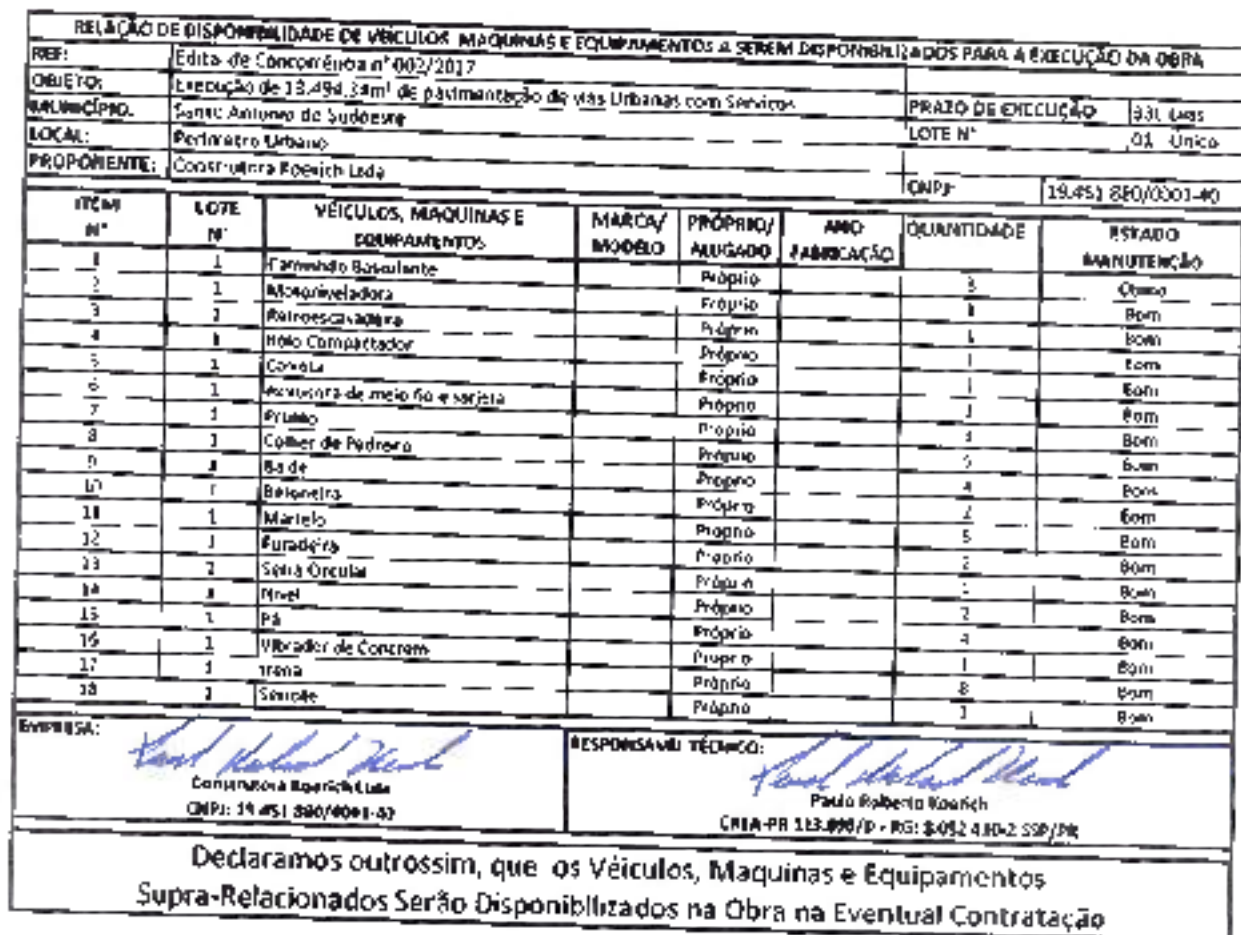 RELAÇÃO DE DISPONIBILIDADE DE VEICULOS MAQUINAS E EQUIPAMENTOS A SEREM DISPONIBILIZADOS PARA A EXECUÇÃO DA OBRA
REF: Edital de Concorrência n° 002/2017
OBJETO: Execução de 13.494,34m² de pavimentação de vias Urbanas com Serviços
MUNICÍPIO. Santo Antonio do Sudoeste PRAZO DE EXECUÇÃO
LOCAL: Perimetro Urbano LOTE N° 01 Unico
PROPONENTE: Construtora Koerich Ltda CNPJ: 19.451.880/0001-40
ITEM N° LOTE N° VEÍCULOS, MAQUINAS E EQUIPAMENTOS MARCA/ MODELO PRÓPRIO/ ALUGADO ANO FABRICAÇÃO QUANTIDADE ESTADO MANUTENÇÃO
1 1 Caminhão Basculante Próprio 3 Otimo
2 1 Motoniveladora Próprio Bom
3 Retroescavadeira Próprio Bom
4 Rolo Compactador Próprio Bom
5 1 Próprio 1 Bom
6 1 de meio fio e sarjeta Próprio Bom
7 1 Prumo Próprio Bom
8 1 Colher de Pedreiro Próprio 5 Bom
9 Balde Próprio 4 Bom
10 Betoneira Próprio 2 Bom
11 1 Martelo Próprio 5 Bom
12 1 Furadeira Próprio 2 Bom
13 Serra Circular Próprio Bom
14 Nivel Próprio 2 Bom
15 1 Pá Próprio 4 Bom
16 1 Vibrador de Concreto Próprio 1 Bom
17 1 Trena Próprio 8 Bom
18 1 Próprio Bom
EMPRESA: RESPONSAVEL TÉCNICO:
Construtora Koerich Ltda Paulo Roberto Koerich
CNPJ: 19.451.880/0001-40 CREA-PR SSP/PR
Declaramos outrossim, que os Véiculos, Maquinas e Equipamentos
Supra-Relacionados Serão Disponibilizados na Obra na Eventual Contratação